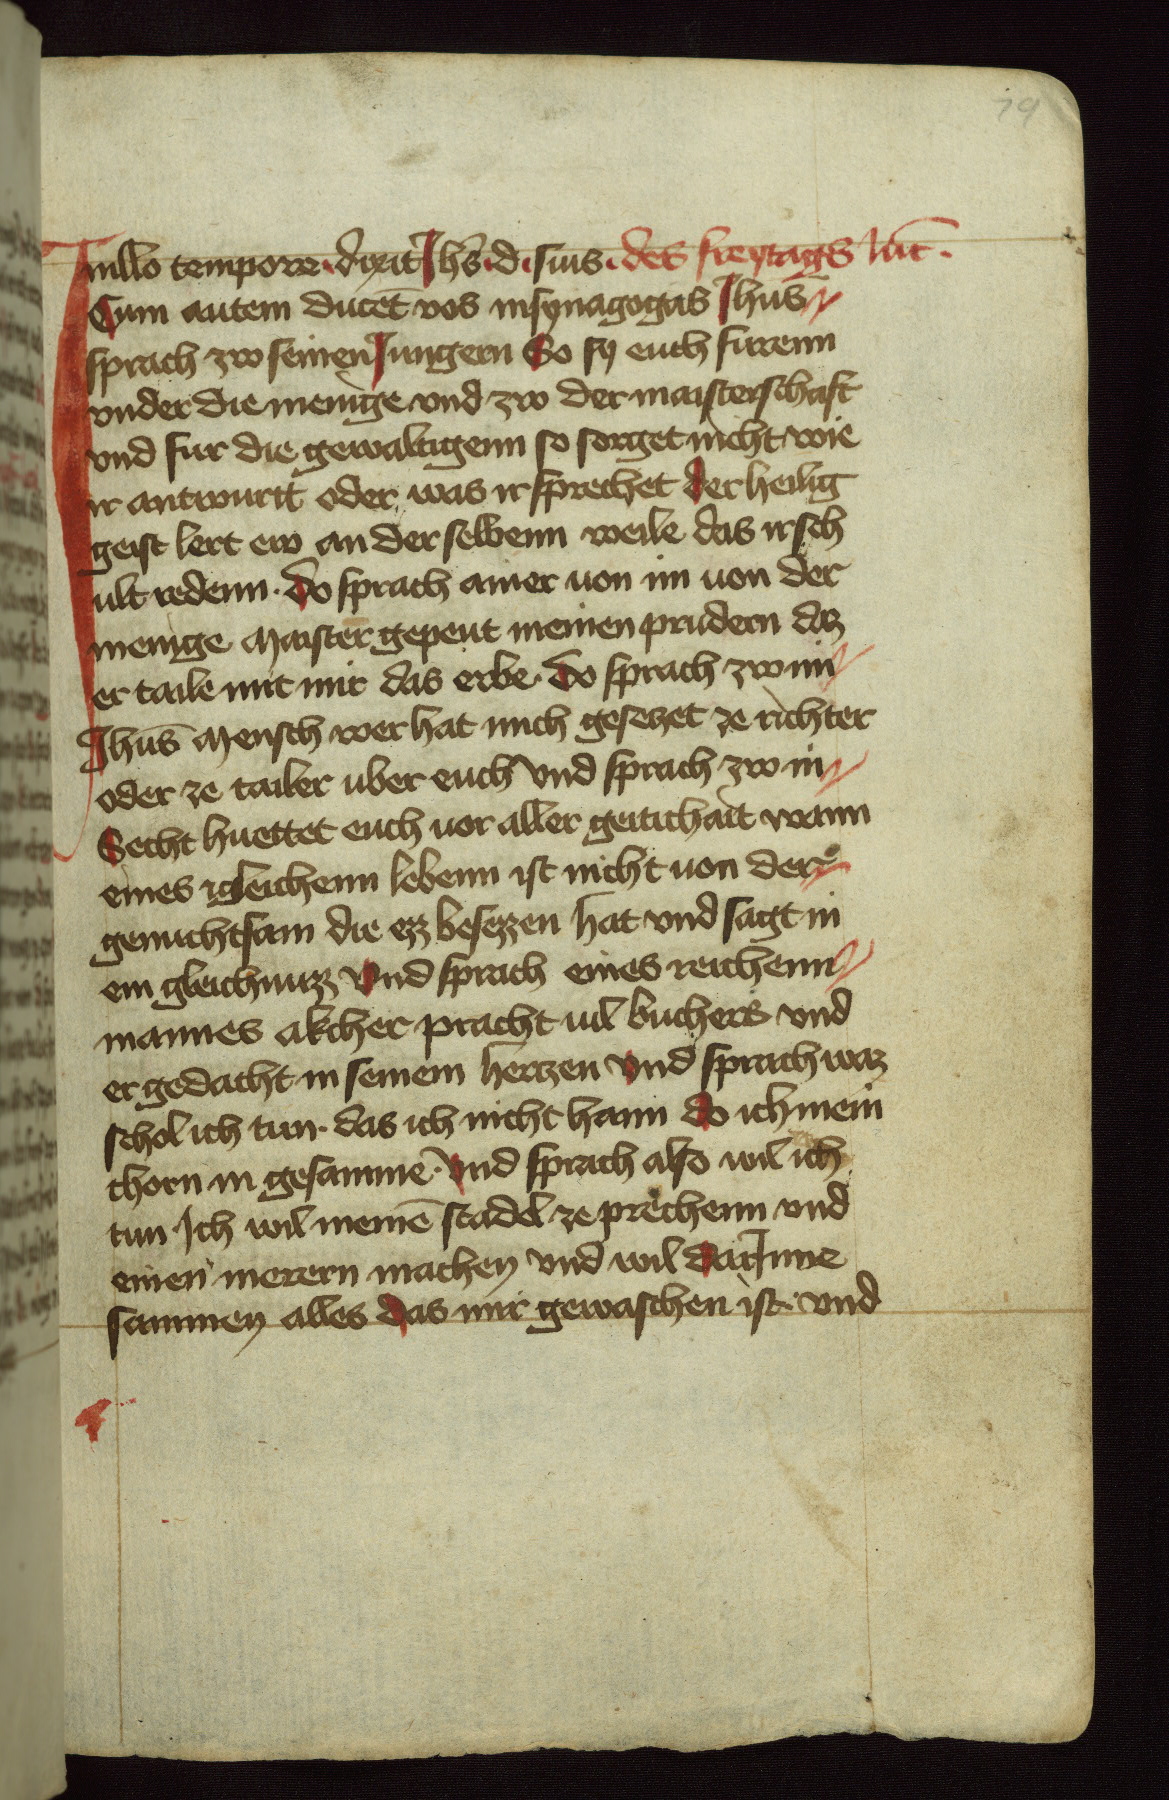 79
In illo tempore · dixit Ihs · d · suis · des freytags luc̄ ·
Cum autem ducēt vos in synagogas Ihūs
sprach zw seinen Iungern So sy euch furenn
vnder die menige vnd zw der maisterschaft
vnd fur die gewaltigenn so sorget nicht wie
ir antwurtt oder was ir sprechet der heilig
geist lert ew an der selbenn weile das ir sch
ult redenn · do sprach ainer von im von der
menige Maister gepeut meinen prudern daz
er taile mit mir das erbe · do sprach zw im
Ihūs Mensch wer hat mich gesetzet ze richter
oder ze tailer uber euch vnd sprach zw in
Secht huettet euch vor aller geitichait wann
eines igleichenn lebenn ist nicht von der
genuchtsam die ezz besezzen hat vnd sagt in
ein gleichnuzz vnd sprach eines reichenn
mannes akcher pracht uil buchers vnd
er gedacht in seinem hertzen vnd sprach waz
schol ich tun · das ich nicht hann do ich mein
chorn in gesamme · vnd sprach also wil ich
tun Ich wil meinē stadel ze prechenn vnd
einen merern machen vnd wil dar Inne
sammen alles das mir gewaschen ist · vnd